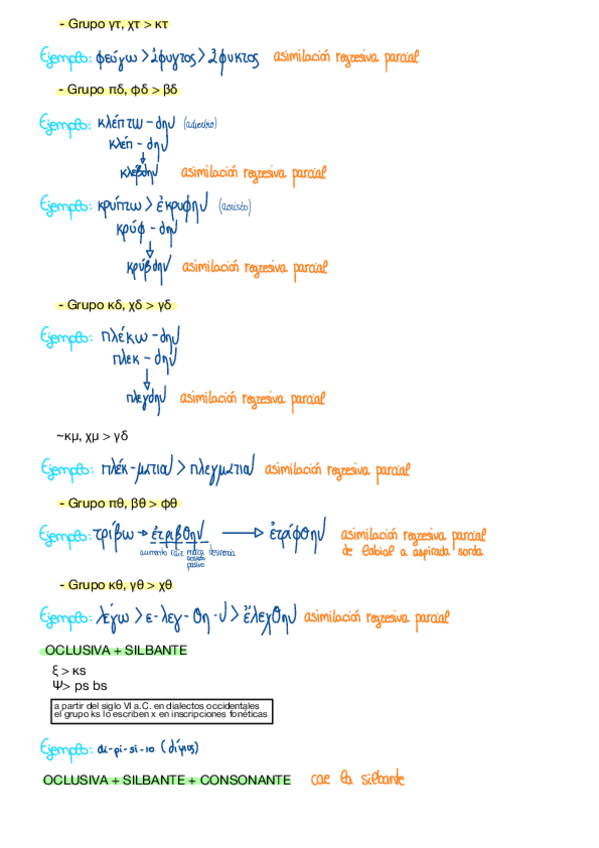 - Grupo γτ, χτ > κτ
Ejemplo: φεύγω > ἀφυγτος > ἀφυκτος asimilación regresiva parcial
- Grupo πδ, φδ > βδ
Ejemplo: κλέπτω - δην (adverbio)
κλέπ - δην
κλέβδην asimilación regresiva parcial
Ejemplo: κρύπτω > ἐκρυφην (aoristo)
κρύφ - δην
κρύβδην asimilación regresiva parcial
- Grupo κδ, χδ > γδ
Ejemplo: πλέκω - δην
πλεκ - δην
πλεγδην asimilación regresiva parcial
~κμ, χμ > γδ
Ejemplo: πλέκ-ματιαν > πλεγματιαν asimilación regresiva parcial
- Grupo πθ, βθ > φθ
Ejemplo: τρίβω → ἐτριβθην → ἐτρίφθην asimilación regresiva parcial
aumento raíz marca desinencia de labial a aspirada sorda
pasivo
- Grupo κθ, γθ > χθ
Ejemplo: λέγω > ε-λεγ-θη-ν > ἔλεχθην asimilación regresiva parcial
OCLUSIVA + SILBANTE
ξ > κs
Ψ> ps bs
a partir del siglo VI a.C. en dialectos occidentales
el grupo ks lo escriben x en inscripciones fonéticas
Ejemplo: di-pi-si-jo (δίψιος)
OCLUSIVA + SILBANTE + CONSONANTE cae la silbante